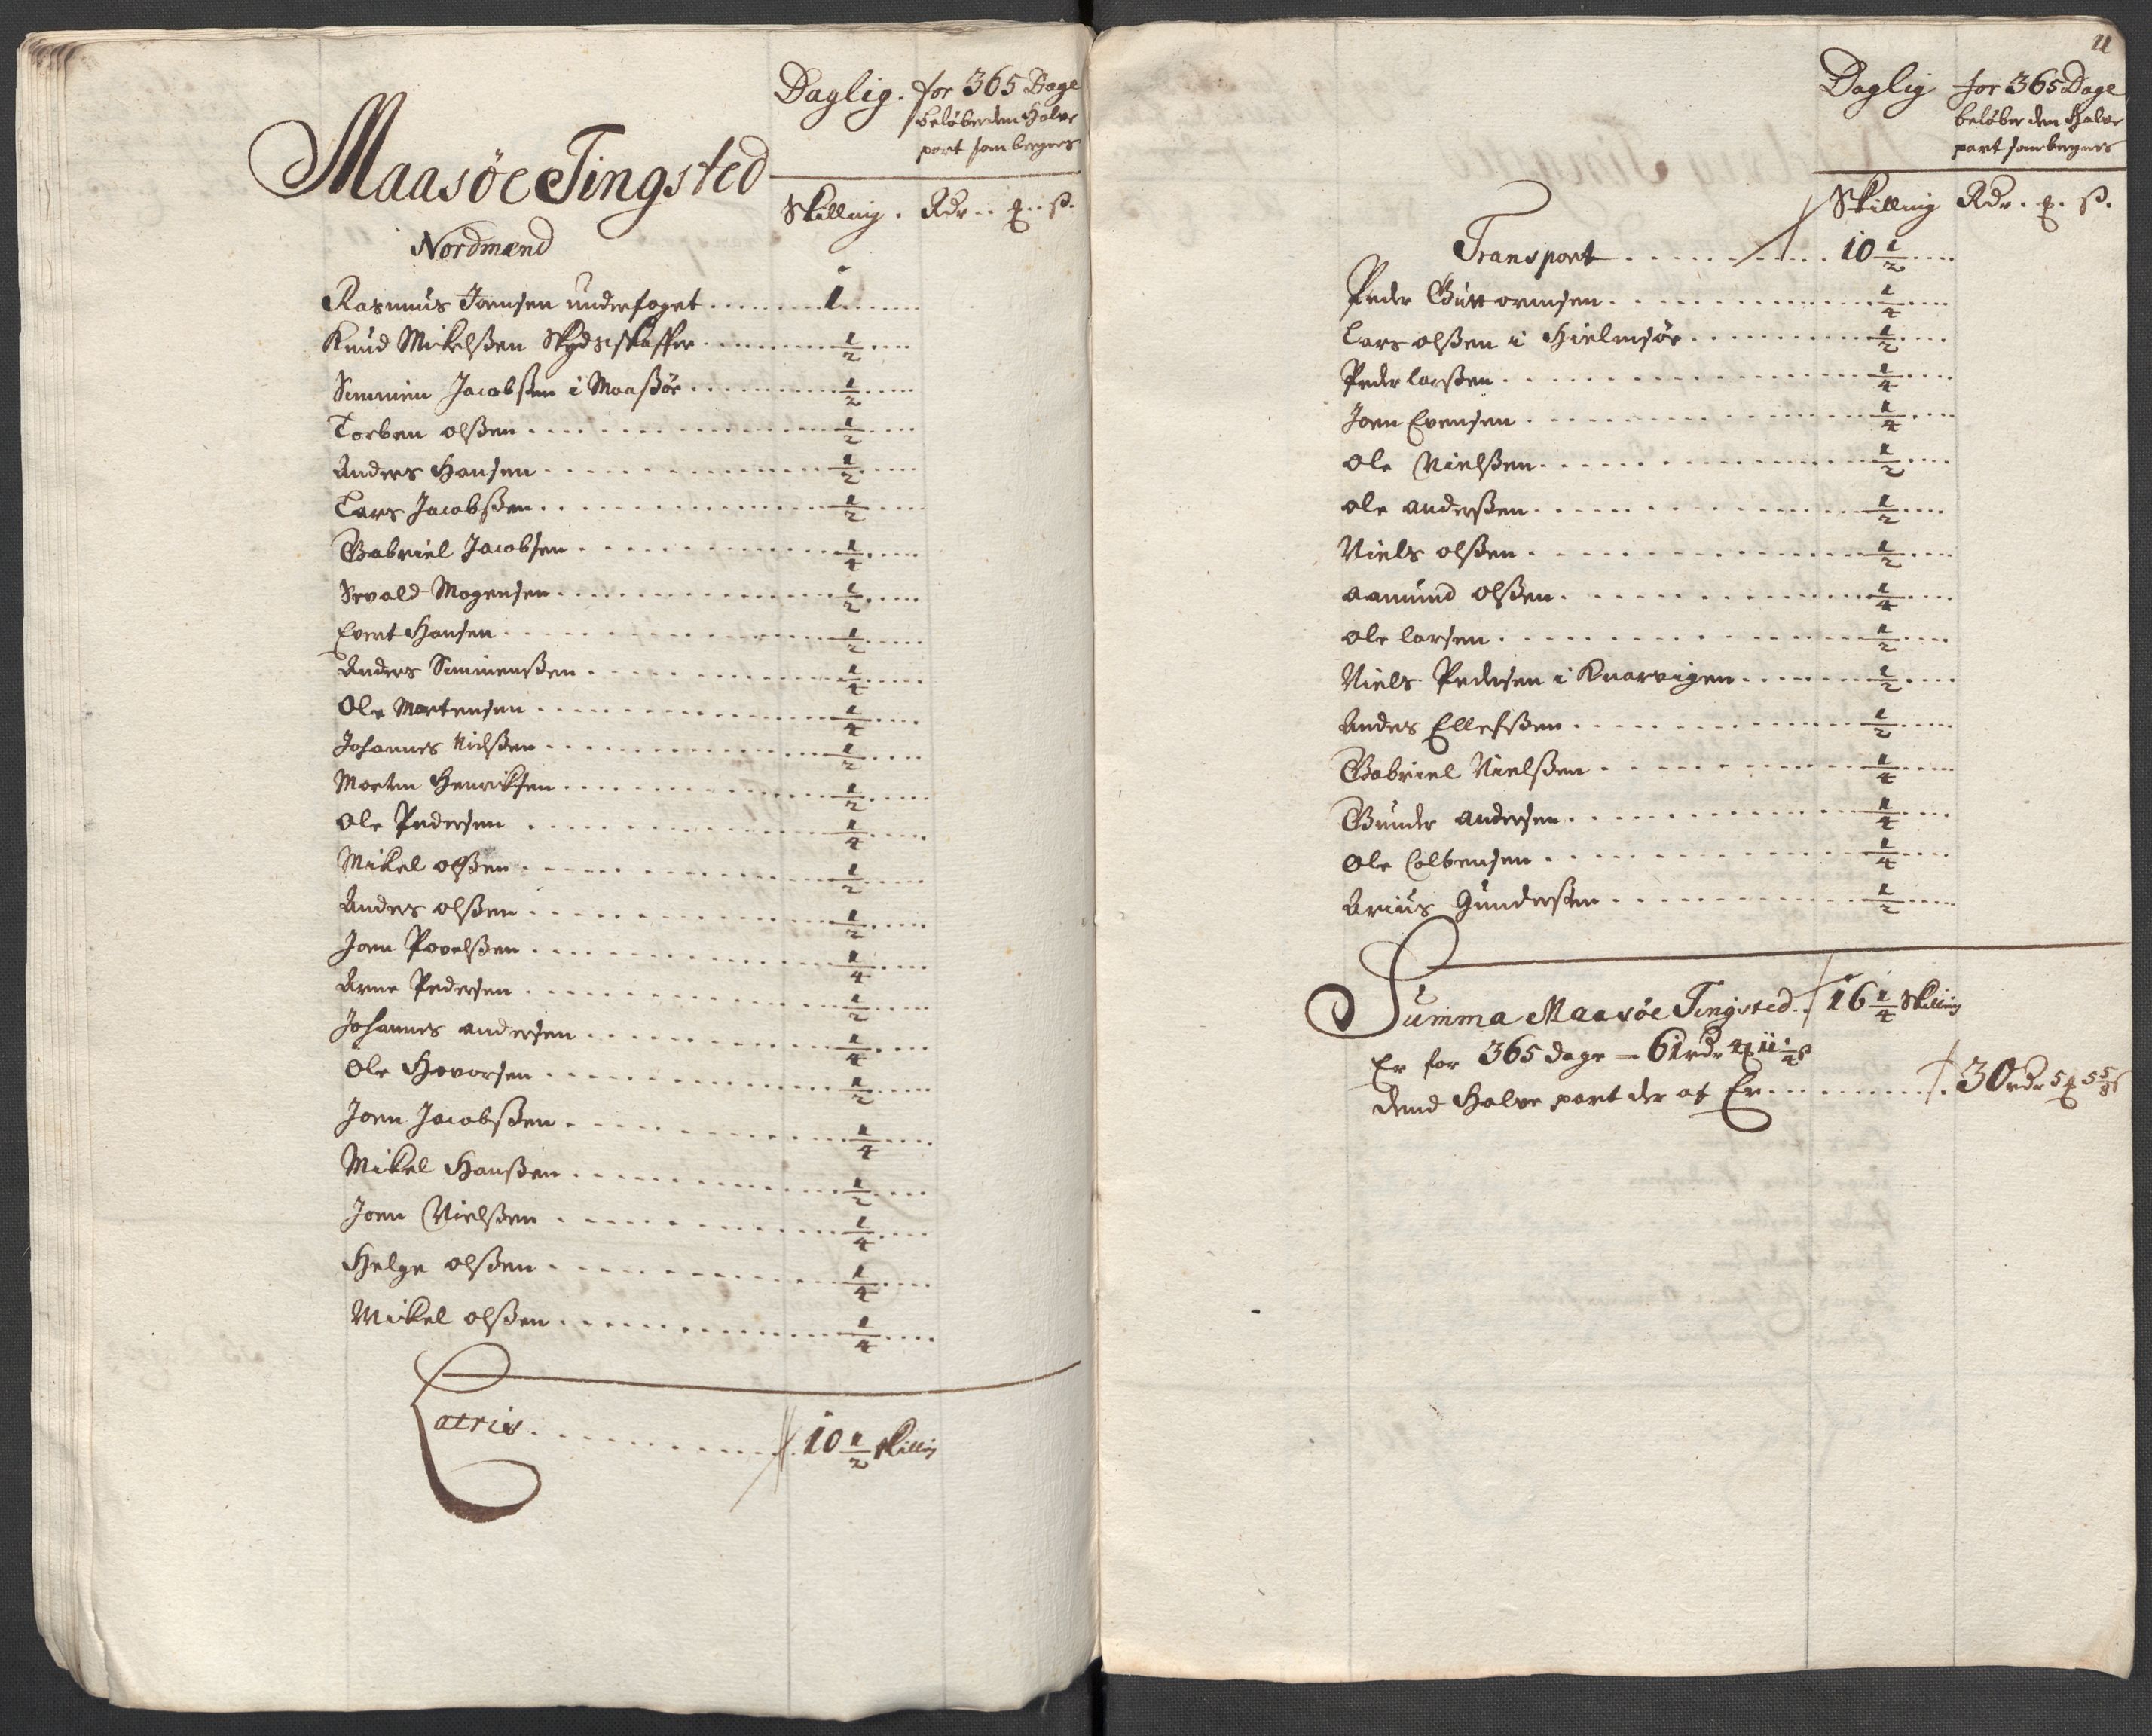 Daglig. for 365 Dage
beløber den Halve
part som beregnes
Maasöe Tingsted
Skilling. Rdr.. ꝼ.. ß.
Nordmænd
Rasmus Joensen underfoget . . . . 1 . . . .
Knud Mikelßen Skydsskaffer . . . . 1/2 . . . .
Simmen Jacobßen i Maaßöe . . . . 1/2 . . . .
Torben olßen . . . . 1/2 . . . .
Anders Hansen . . . . 1/2 . . . .
Lars Jacobßen . . . . 1/2 . . . .
Gabriel Jacobsen . . . . 1/4 . . . .
Sevald Mogensen . . . . 1/2 . . . .
Evert Hansen . . . . 1/2 . . . .
Anders Simmenßen . . . . 1/4 . . . .
Ole Mortensen . . . . 1/4 . . . .
Johannes Nielßen . . . . 1/2 . . . .
Morten Henriksen . . . . 1/2 . . . .
Ole Pedersen . . . . 1/4 . . . .
Mikel olßen . . . . 1/2 . . . .
Anders olßen . . . . 1/2 . . . .
Joen Povelßen . . . . 1/4 . . . .
Arne Pedersen . . . . 1/2 . . . .
Johannes andersen . . . . 1/4 . . . .
Ole Hovorsen . . . . 1/2 . . . .
Joen Jacobßen . . . . 1/4 . . . .
Mikel Hanßen . . . . 1/2 . . . .
Joen Nielßen . . . . 1/4 . . . .
Helge olßen . . . . 1/4 . . . .
Mickel olßen . . . . 1/4 . . . .
Latris . . . . 10 1/2 skilling
11
Daglig for 365 Dage
beløber den Halve
part som beregnes
Skilling Rdr. ꝼ. ß.
Transport . . . . 10 1/2 . . . .
Peder Guttormsen . . . . 1/4 . . . .
Lars olßen i Hielmsöe . . . . 1/2 . . . .
Peder larßen . . . . 1/4 . . . .
Joen Evensen . . . . 1/4 . . . .
Ole Nielßen . . . . 1/2 . . . .
ole anderßen . . . . 1/2 . . . .
Niels olßen . . . . 1/2 . . . .
aamund olßen . . . . 1/4 . . . .
ole larsen . . . . 1/2 . . . .
Niels Pedersen i Knarvigen . . . . 1/2 . . . .
Anders Ellefsßen . . . . 1/2 . . . .
Gabriel Nielßen . . . . 1/4 . . . .
Gunder andersen . . . . 1/4 . . . .
Ole Colbensen . . . . 1/4 . . . .
Arius Gunderßen . . . . 1/2 . . . .
Summa Maasöe Tingsted . . 16 1/4 Skilling
Er for 365 dage — 61 rdr 4 ꝼ 11 1/4 ß
dend Halve part der af Er . . . . 30 rdr 5 ꝼ 5 5/8 ß